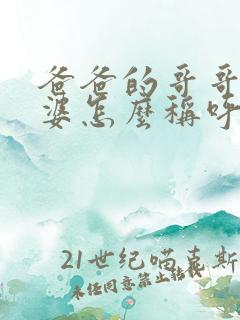 爸爸的哥哥
婆怎麼稱呼
21世纪喵喜斯
未经同意禁止转载